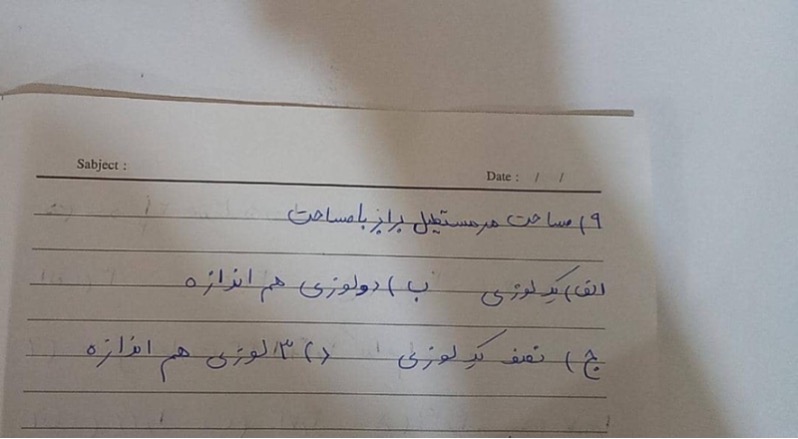 Sabject :
Date : / /
۹) مساحت هر مستطیل برابر با مساحت
الف) یک لوزی ب) دو لوزی هم اندازه
ج) نصف یک لوزی د) ۳ لوزی هم اندازه